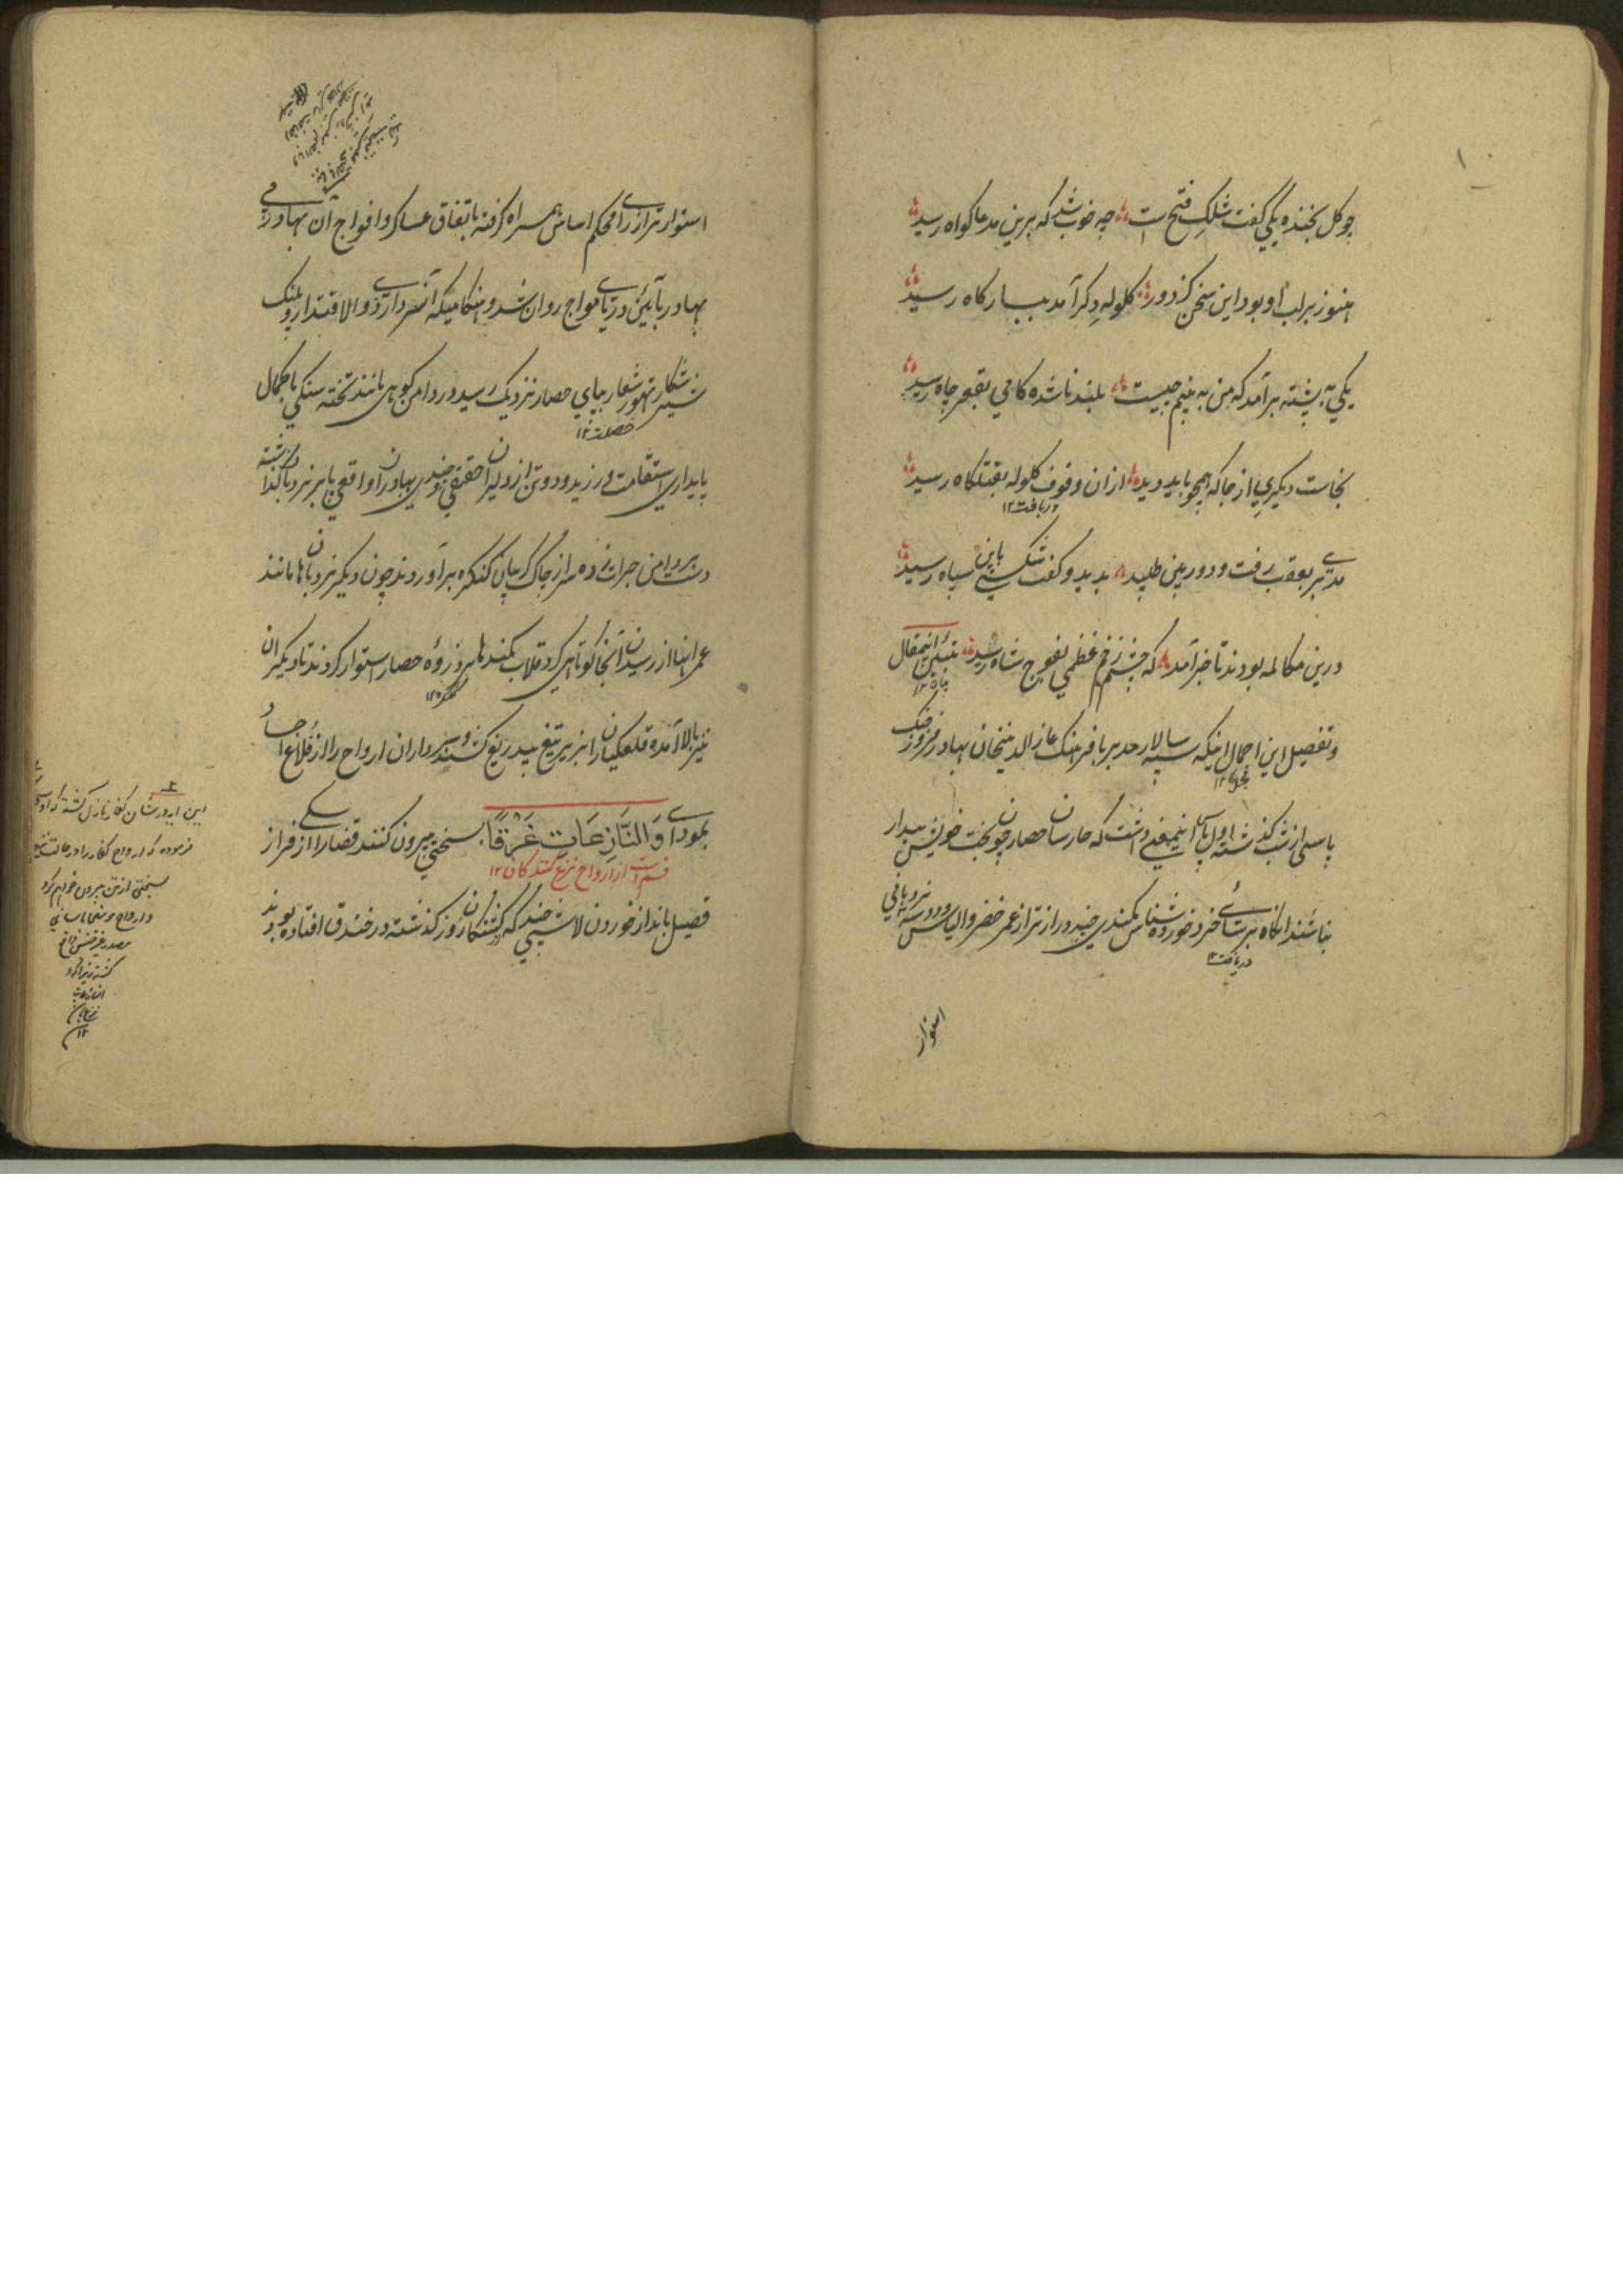 ۱۰
چو گل بخنده یکی گفت شلک فتح است چه خوب شد که برین مدعا گواه رسید
هنوز بر لب او بود این سخن کز دور کلوله دکر آمد ببارکاه رسید
یکی به پشته برآمد که من به بینم چیست بلند ناشده کامی بقعر چاه رسید
بخاست دیکری از جا که هیچ باید دید ازان وقوف کلوله بقتلکاه رسید
دریافت ۱۲
مدبری بعقب رفت و دوربین طلبید بدید و گفت سیاه رسید
درین مکالمه بودند تا خبر آمد که چشم زخم عظمی بفوج شاه رسید تبیین اینمقال
و تفصیل این اجمال اینکه سپه سالار مدبر با فرهنک غازالدینخان بهادر فیروز جنک
پاسی از شب کذشته اول پاس اینمعنی داشت که حارسان حصار چون بخت خویش بیدار
نباشند انکاه برسائی خرد خورده شناس کمندی چند دراز تر از عمر خضر و الیاس و دو سه نردبانی
دریافت ۱۲
استوار
استوار تر از رای محکم اساس همراه گرفته باتفاق عساکر و افواج آن بهادر رزمی
بهادر بآئین دریای مواج روان شد و هنکامیکه آنسردار ذوالاقتدار پلنک
شیر شکار تهور شعار بپای حصار نزدیک رسید در دامن کوهی مانند تخته سنکی باکمال
خصلت ۱۲
پایداری استقامت ورزید و دو تن از دلیران حقیقی و چندی بهادران واقعی پا بر نردبانها کذاشته
دست بردامن جرات زده سر از چاک کریبان کنکره برآوردند چون دیکر نردبانها مانند
عمر اعدا از رسیدن آنجا کوتاهی کرد قلاب کمندها بر ذروه حصار استوار کردند تا دیکران
نیز بالا آمده قلعکیان را بزیر تیغ بیدریغ کشند و سرداران ارواح را از قلاع اجساد
بمودای وَالنَّازِعَاتِ غَرْقًا بسختی بیرون کنند قضا را سکی از فراز
قسم است از ارواح نزع کنندکان ۱۲
فصیل بانداز خوردن لاشی چند که کشتکان روز کذشته در خندق افتاده بودند
این آیه در شان کفار نازل کشته
فرموده که ارواح کفار را در حالت
بسختی از تن بیرون خواهم کرد
و ارواح مومنین باسانی
۱۲